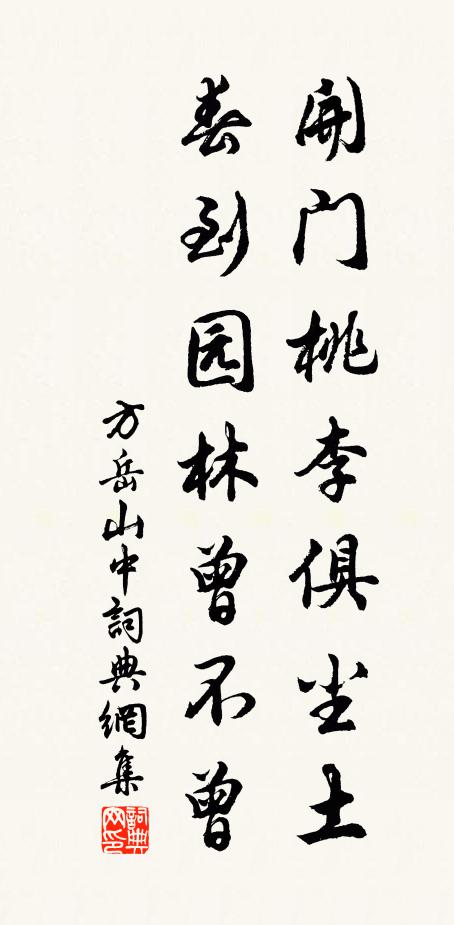 開门桃李俱尘土
春到园林曾不曾
方岳山中詞典網集
詞典网印